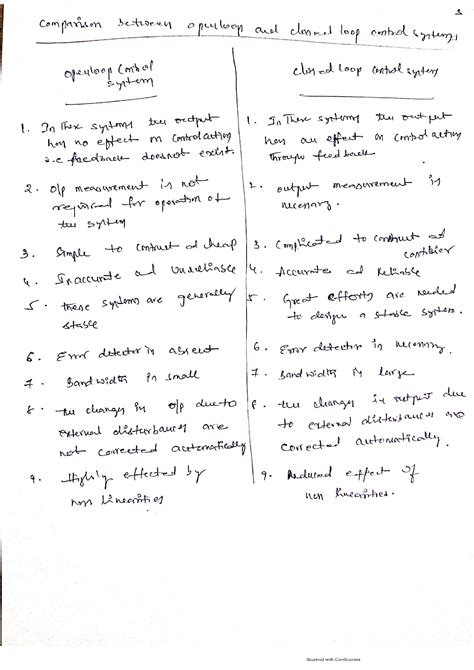 Comparison between openloop and closed loop control systems
openloop Control
system
1. In These systems the output
has no effect on control action
i.e feedback doesnot exist.
2. o/p measurement is not
required for operation of
the system
3. Simple to construct ad cheap
4. Inaccurate ad Unreliable
5. these systems are generally
stable
6. Error detector is absent
7. Bandwidth is small
8. the changes in o/p due to
external disturbances are
not corrected automatically
9. Highly effected by
non linearities
closed loop control system
1. In These systems the output
has an effect on control action
through feedback
2. output measurement is
necessary.
3. Complicated to construct ad
costlier
4. Accurate ad Reliable
5. Great efforts are needed
to design a stable system.
6. Error detector is necessary
7. Bandwidth is large
8. the changes in output due
to external disturbances are
corrected automatically.
9. Reduced effect of
non linearities.
Scanned with CamScanner